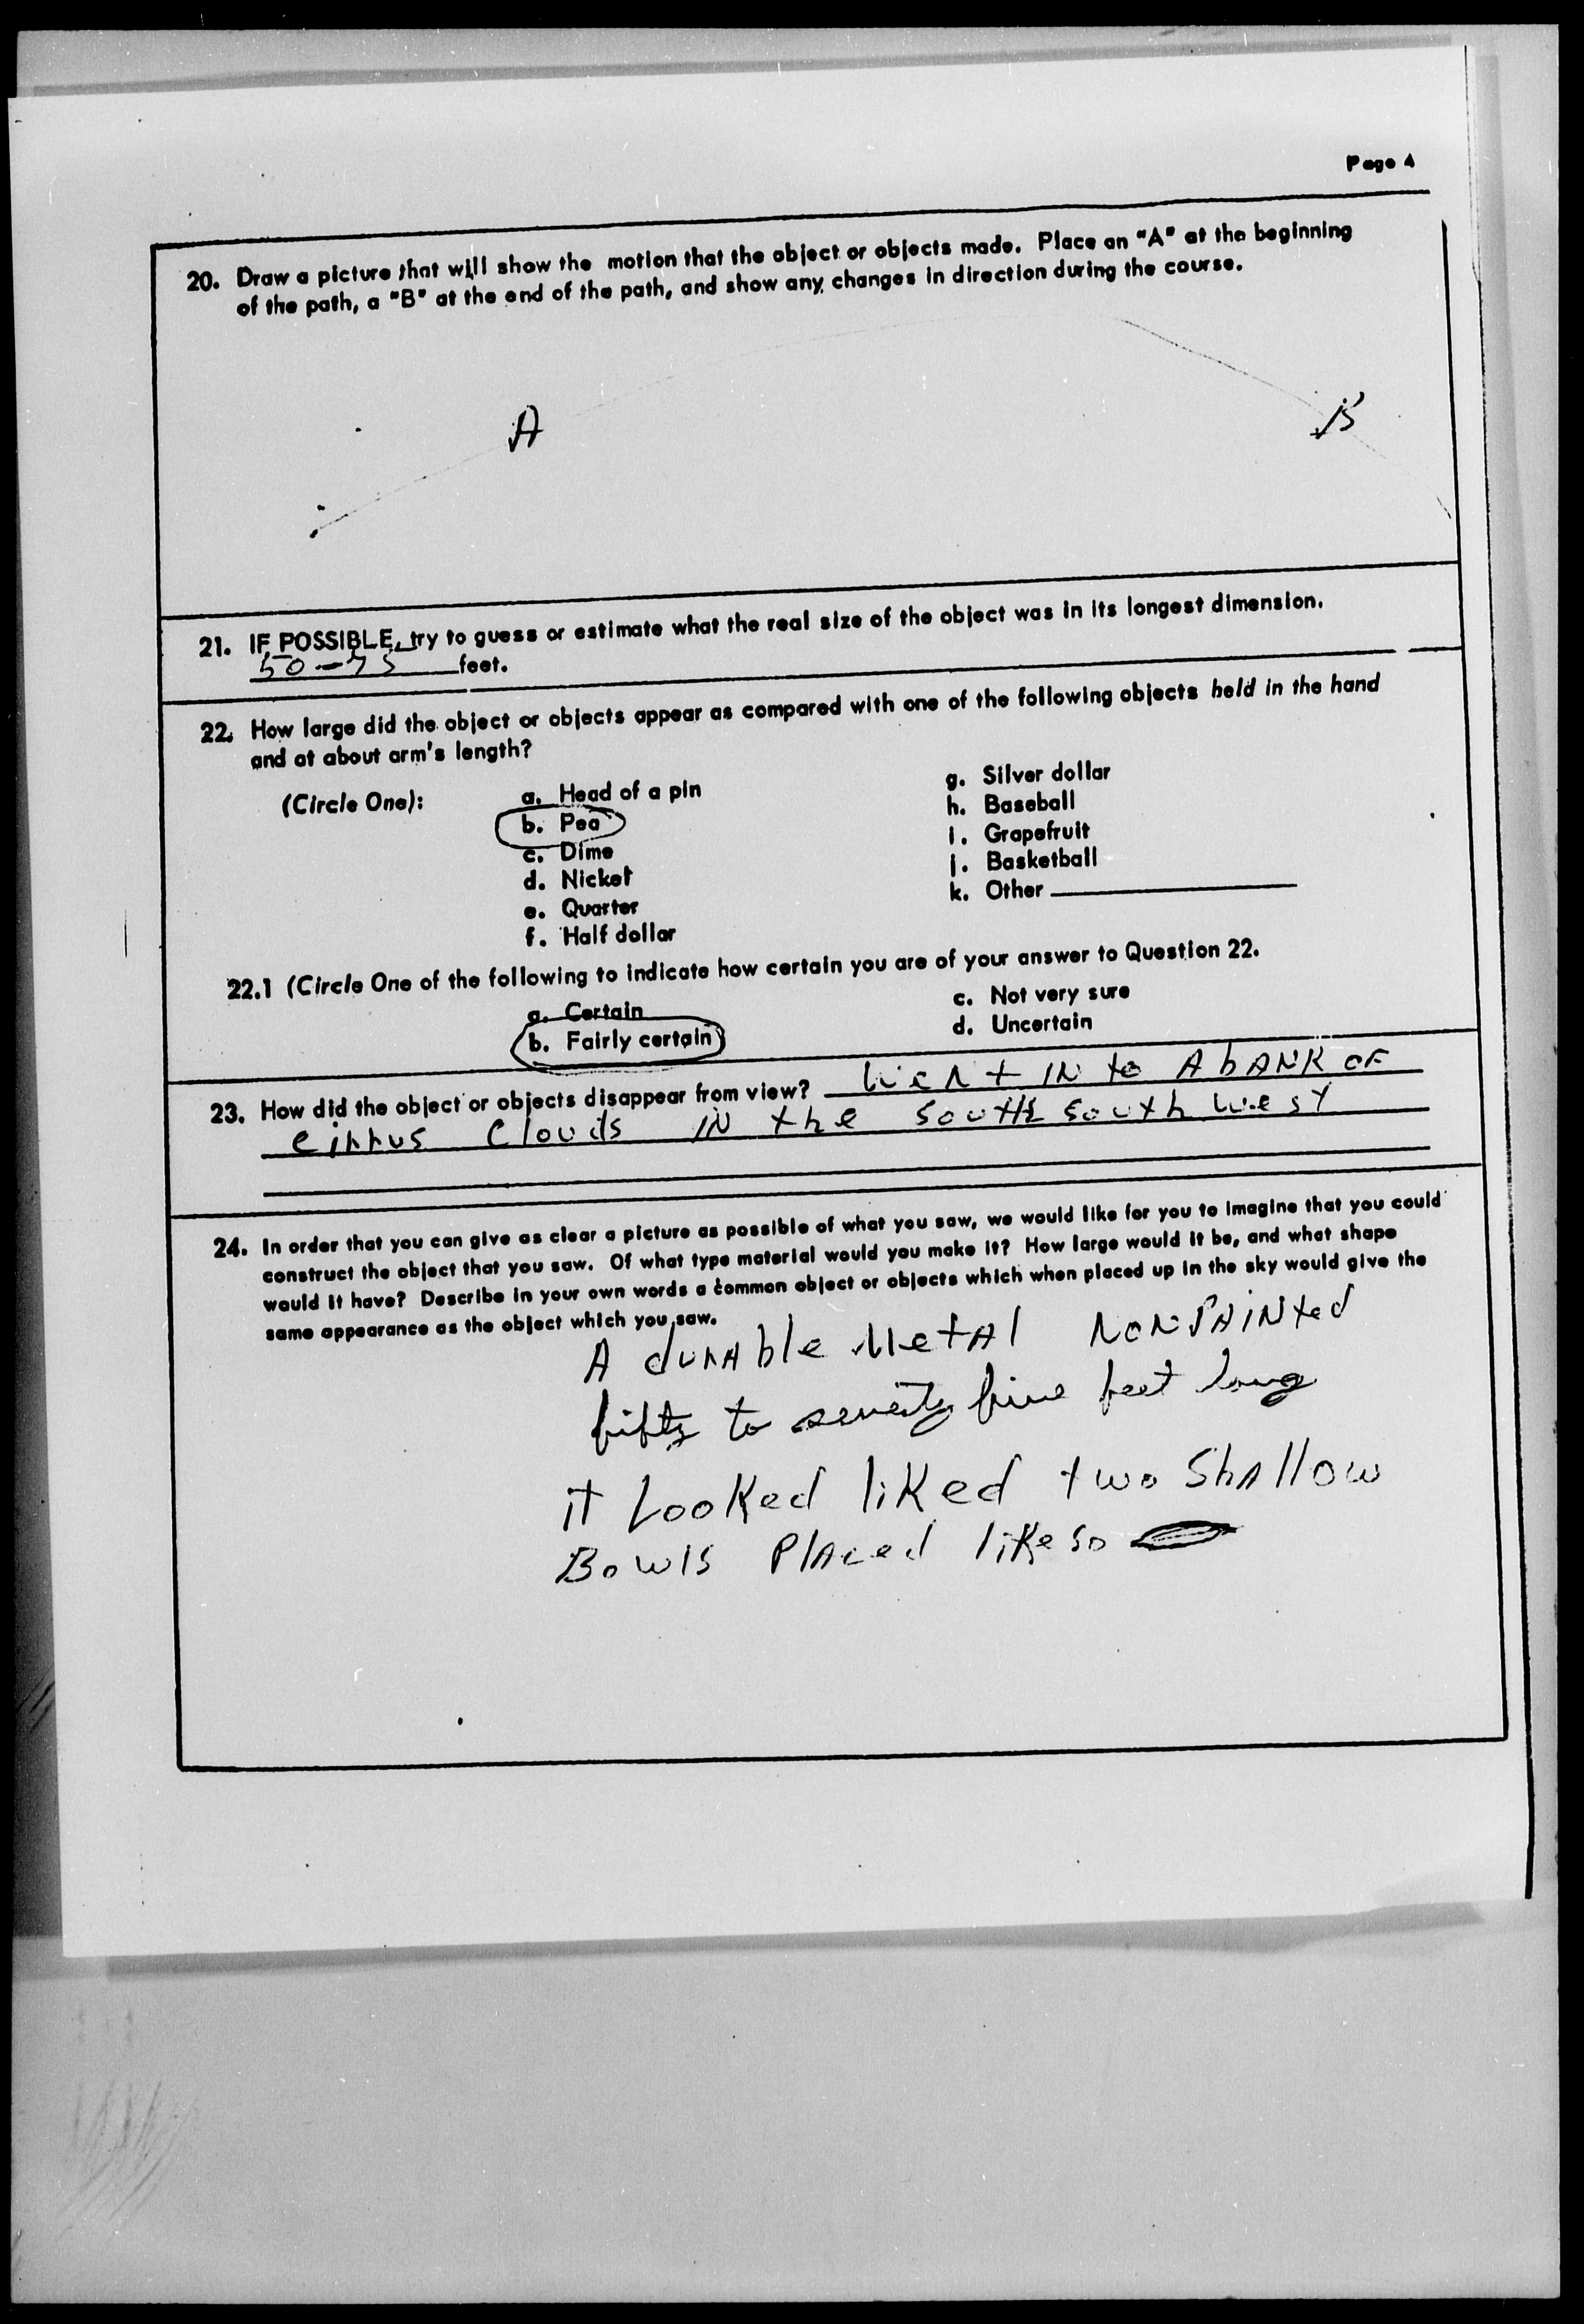 Page 4
20. Draw a picture that will show the motion that the object or objects made. Place an "A" at the beginning
of the path, a "B" at the end of the path, and show any changes in direction during the course.
A
B
21. IF POSSIBLE, try to guess or estimate what the real size of the object was in its longest dimension.
50-75 feet.
22. How large did the object or objects appear as compared with one of the following objects held in the hand
and at about arm's length?
(Circle One):
a. Head of a pin
b. Pea
c. Dime
d. Nickel
e. Quarter
f. Half dollar
g. Silver dollar
h. Baseball
i. Grapefruit
j. Basketball
k. Other
22.1 (Circle One of the following to indicate how certain you are of your answer to Question 22.
a. Certain
b. Fairly certain
c. Not very sure
d. Uncertain
23. How did the object or objects disappear from view? Went INto A bANK OF
cirrus Clouds IN the south south west
24. In order that you can give as clear a picture as possible of what you saw, we would like for you to imagine that you could
construct the object that you saw. Of what type material would you make it? How large would it be, and what shape
would it have? Describe in your own words a common object or objects which when placed up in the sky would give the
same appearance as the object which you saw.
A durAble MetAl NONPAINted
fifty to seventy five feet long
it Looked liked two ShAllow
Bowls PlAced like so